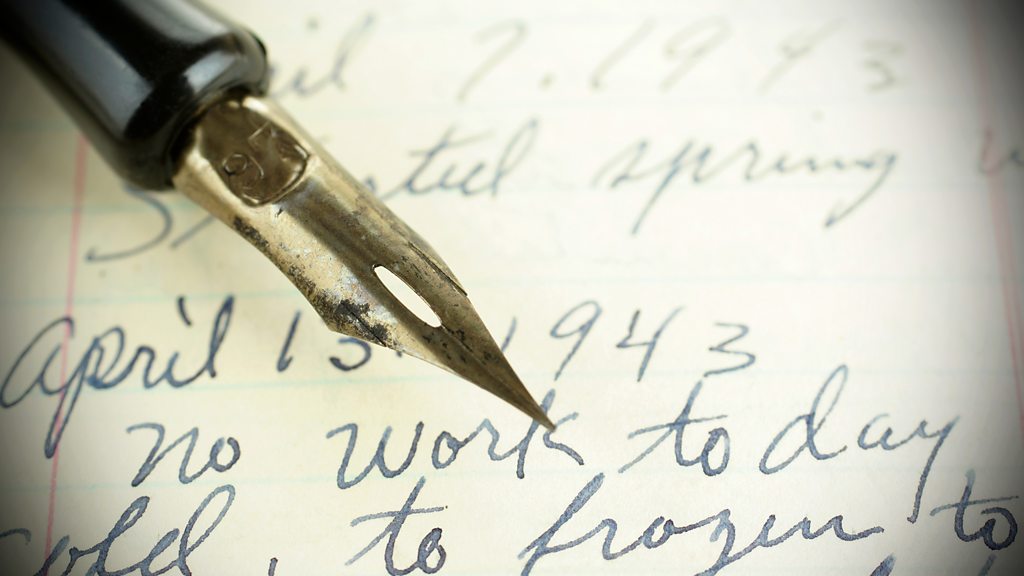 7. 1943
spring
April 13. 1943
no work to day
cold, to frozen to